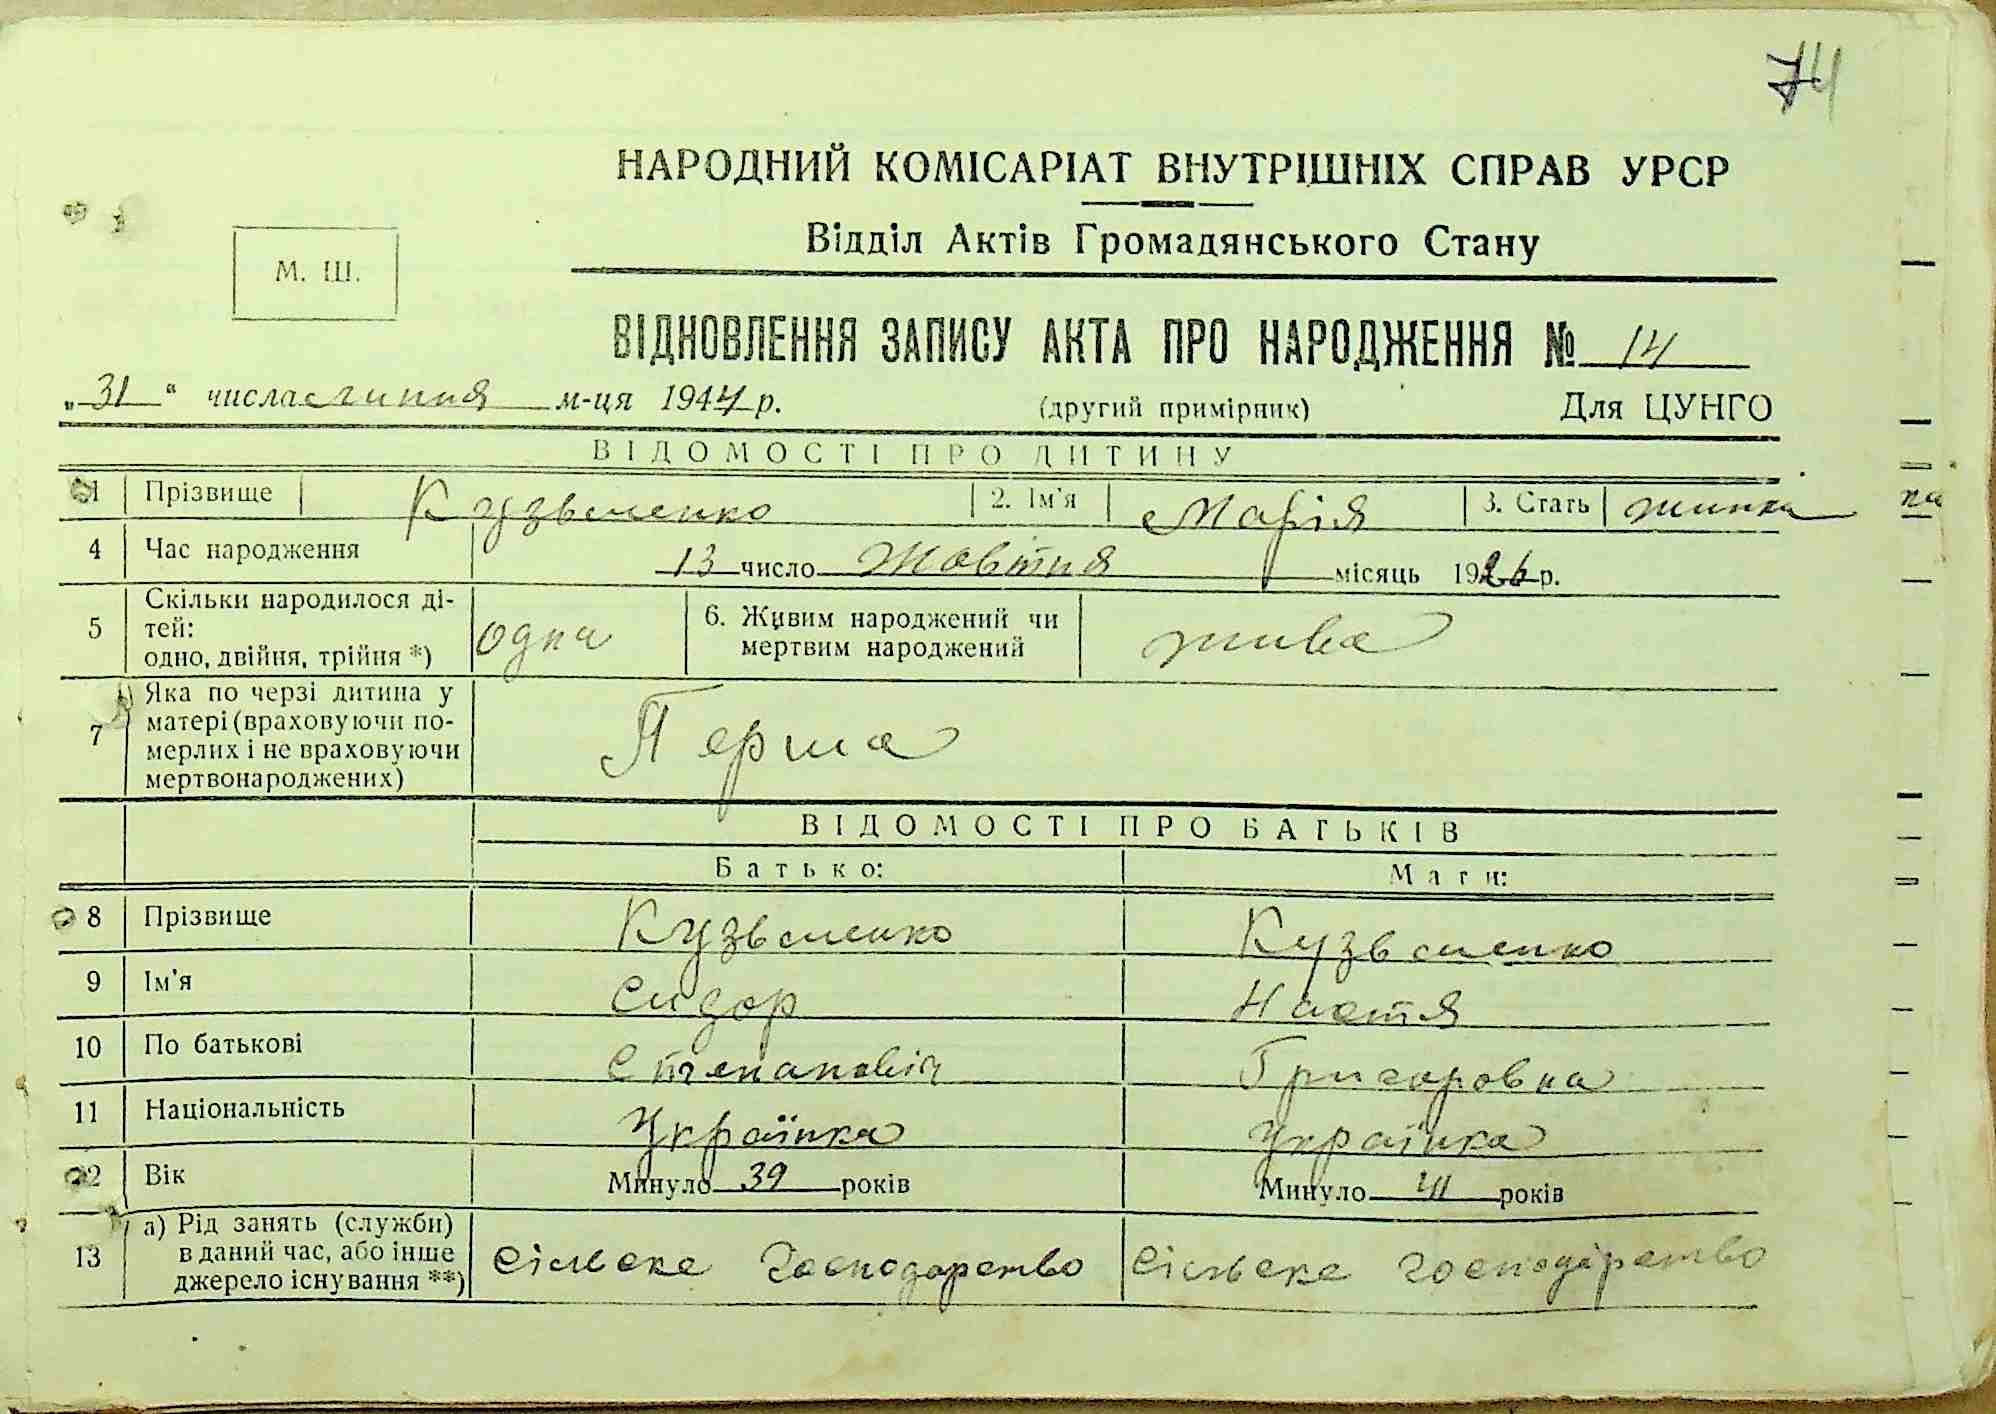 74
НАРОДНИЙ КОМІСАРІАТ ВНУТРІШНІХ СПРАВ УРСР
Відділ Актів Громадянського Стану
М. Ш.
ВІДНОВЛЕННЯ ЗАПИСУ АКТА ПРО НАРОДЖЕННЯ № 14
„31“ числа липня м-ця 1944 р. (другий примірник) Для ЦУНГО
ВІДОМОСТІ ПРО ДИТИНУ
1 Прізвище Кузьменко 2. Ім'я Марія 3. Стать жинка
4 Час народження 13 число Жовтня місяць 1926 р.
5 Скільки народилося ді-
тей:
одно, двійня, трійня *) одна 6. Живим народжений чи
мертвим народжений жива
7 Яка по черзі дитина у
матері (враховуючи по-
мерлих і не враховуючи
мертвонароджених) Перша
ВІДОМОСТІ ПРО БАТЬКІВ
Батько: Мати:
8 Прізвище Кузьменко Кузьменко
9 Ім'я Сидор Настя
10 По батькові Степановіч Григоровна
11 Національність Українка Українка
12 Вік Минуло 39 років Минуло 41 років
13 а) Рід занять (служби)
в даний час, або інше
джерело існування **) Сільске господарство Сільске господарство